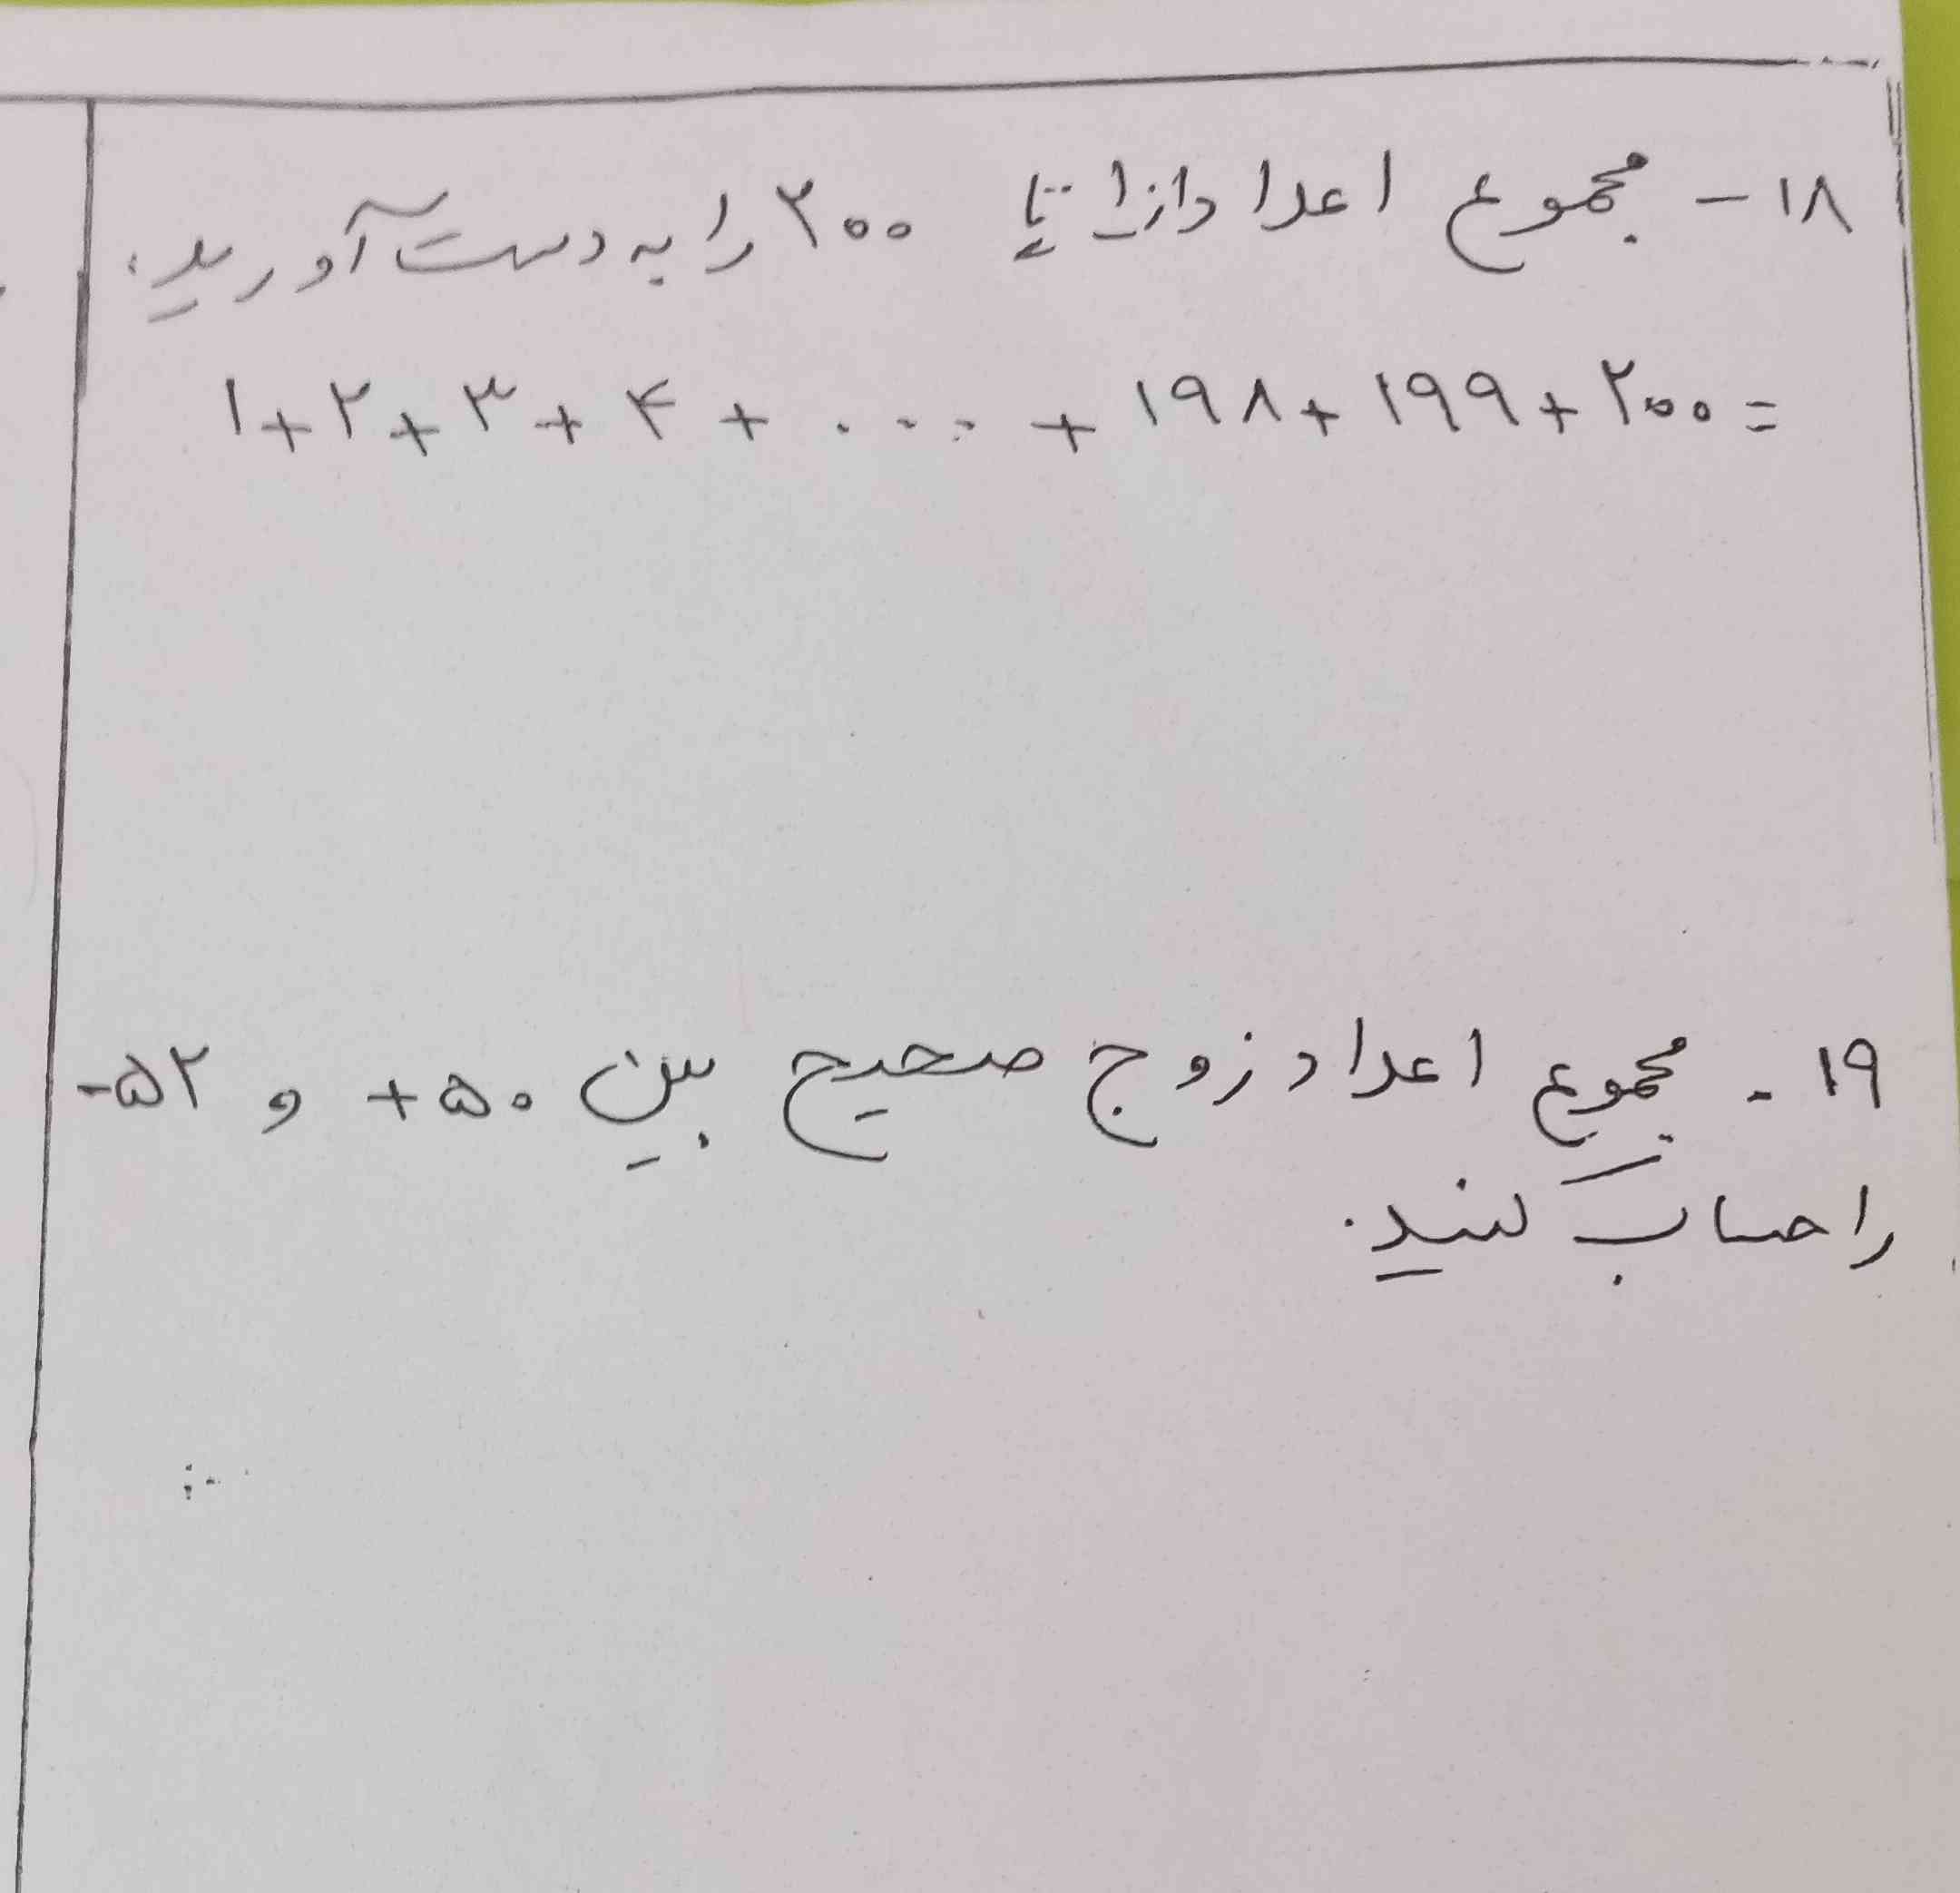 ۱۸ - مجموع اعداد از ۱ تا ۲۰۰ را به دست آورید.
۱+۲+۳+۴+....+۱۹۸+۱۹۹+۲۰۰=
۱۹ - مجموع اعداد زوج صحیح بین +۵۰ و -۵۲
را حساب کنید.